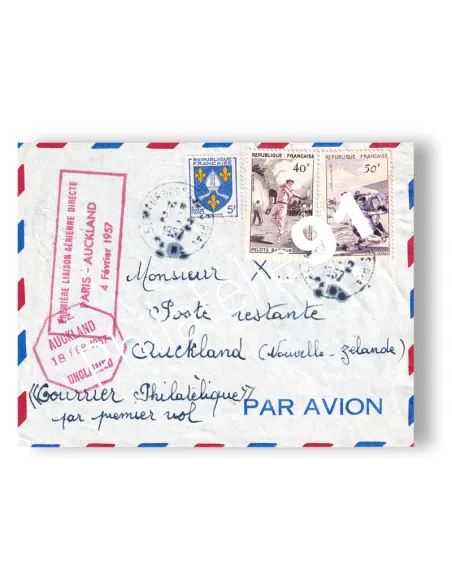 REPUBLIQUE FRANÇAISE
5F
REPUBLIQUE FRANÇAISE
40F
PELOTE BASQUE
REPUBLIQUE FRANÇAISE
50F
91
PREMIÈRE LIAISON AÉRIENNE DIRECTE
PARIS - AUCKLAND
4 Février 1957
AUCKLAND
18 FEB 1957
UNCLAIMED
Monsieur X...
Poste restante
Auckland (Nouvelle-Zélande)
"Courrier Philatélique"
par premier vol
PAR AVION